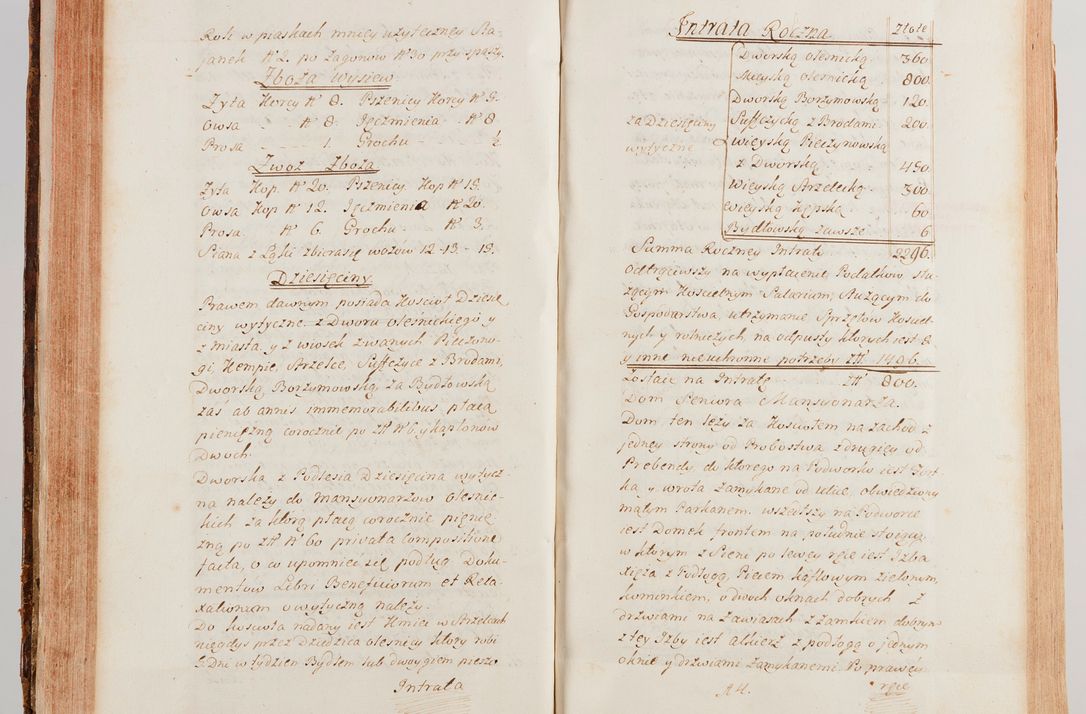 Rolı w piaskach mniey użyteczney Sta-
janek Nº 2. po Zagonow Nº 30 przy
Zboża Wysiew
Zyta Korcy Nº 8. Pszenicy Korcy Nº 9.
Owsa - - - Nº 8. Jęczmienia - Nº 8
Prosa - - - 1. Grochu - - - ½
Zwoz Zboża
Zyta Kop. Nº 20. Pszenicy Kop Nº 18.
Owsa Kop Nº 12. Jęczmienia Nº 20.
Prosa Nº 6. Grochu - Nº 3.
Siana z Łąki zbierasię wozów 12-13-18.
Dziesięciny
Prawem dawnym posiada Kościoł Dziesię
ciny wytyczne z Dworu Olesnickiego y
z miasta, y z wiosek zwanych Pieczono-
gi, Kempie, Strzelce, Suffczyce z Brodami,
Dworską Borzymowską, za Bydłowską
zaś ab annis immemorabilibus płacą
pieniężną corocznie po Złł Nº 6 y kapłonow
Dwoch.
Dworska z Podlesia Dziesięcina wytycz-
na należy do Mansyonarzow Olesnic-
kich za ktorą płacą corocznie pienię
żną po złł Nº 60 privata compositione
facta, o co upomnieć się podług Doku-
mentow Libri Beneficiorum et Reta-
xationum o wytyczną należy.
Do Kościoła nadany iest Kmieć w Strzelcach
niegdys przez Dziedzica Olesnicy ktory robi
2 Dni w tydzien Bydłem lub dwoygiem pieszo
Intrata
Intrata Roczna Złote
Dworską Olesnicką 360
Mieyską Olesnicką 800.
Dworską Borzymowską 120.
za Dziesięciny Suffczycką z Brodami 200
wytyczne Wieyską Pieczynowską
z Dworską 450
Wieyską Strzelecką 300
Wieyską Kępską 60
Bydłowską zawsze 6
Summa Roczney Intraty 2296.
Odtrąciwszy na wypłacenie Podatkow słu-
żącym Kościelnym Salarium, służącym do
Gospodarstwa, utrzymanie Sprzętow Kościel-
nych y rolniczych, na odpusty ktorych iest 8
y inne nieuchronne potrzeby Złł. 1496.
Zostaie na Intratę Złł 800.
Dom Seniora Mansyonarza.
Dom ten leży za Kościołem na zachod z
jedney strony od Probostwa z drugiey od
Prebendy, do ktorego na Podworko iest Fort
ka y wrota zamykane od ulice, obwiedziony
małym Parkanem. wszedłszy na Podworce
iest Domek frontem na południe stoiący
w ktorym z Sieni po lewey ręce iest Izba
xięża z Podłogą, Piecem kaflowym zielonym,
kominkiem, o dwoch oknach dobrych z
drzwiami na zawiasach z zamkiem dobrym
z tey Izby iest alkierz z podłogą o jednym
oknie y drzwiami zamykanemi. Po prawey
A4. ręce